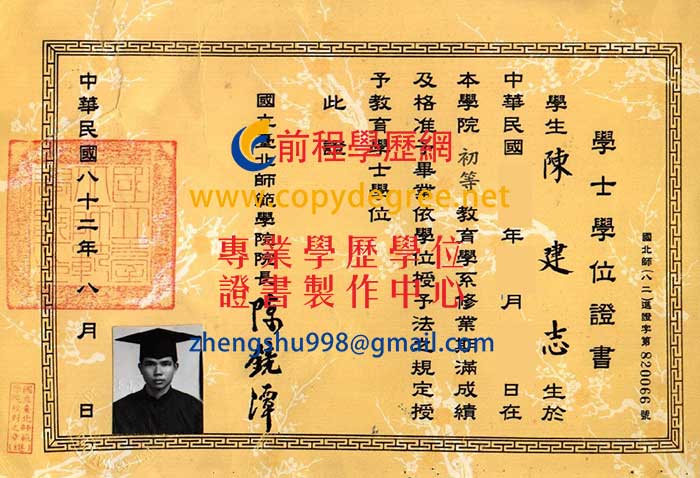 學士學位證書
國北師(八二)進證字第820066號
學生陳建志生於
中華民國 年 月 日在
本學院初等教育學系修業期滿成績
及格准予畢業依學位授予法之規定授
予教育學士學位
此證
國立臺北師範學院院長 陳鏡潭
中華民國八十二年八月 日
前程學歷網
www.copydegree.net
專業學歷學位
證書製作中心
zhengshu998@gmail.com